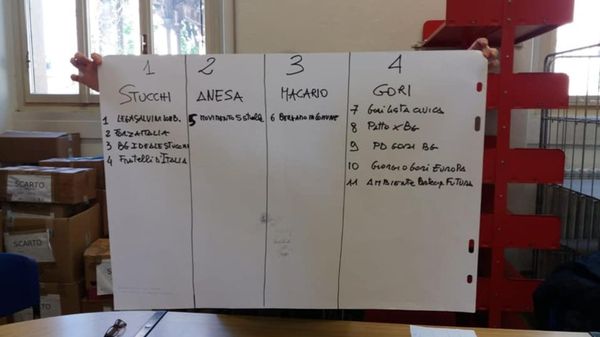 1
2
3
4
STUCCHI
ANESA
MACARIO
GORI
1 LEGA SALVINI LOMB.
2 FORZA ITALIA
3 BG IDEALE STUCCHI
4 Fratelli d'Italia
5 MOVIMENTO 5 stelle
6 BERGAMO IN COMUNE
7 Gori Lista civica
8 Patto x BG
9 PD GORI BG
10 GIORGIO GORI EUROPA
11 AMBIENTE Partecip. FUTURA
SCARTO
SCARTO
SCARTO